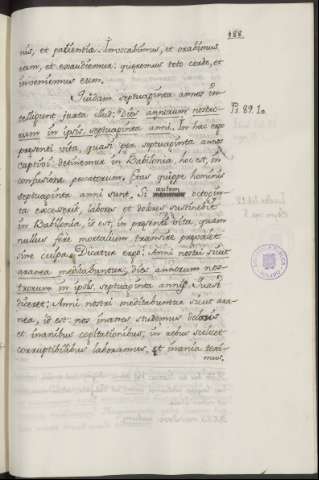 188.
nis, et patientia. Invocabimus, et orabimus
eum, et exaudiemur: queremus toto corde, et
inveniemus eum.
Quidam septuaginta annos in-
telligunt juxta illud: Dies annorum nostro-
rum in ipsis septuaginta anni. In hac ergo
presenti vita, quasi per septuaginta annos
captivi detinemur in Babilonia, hoc est, in
confusione peccatorum. Etas quippe hominis
septuaginta anni sunt. Si autem octogin-
ta excesserit, labores et dolores sustinebit
in Babilonia, id est, in presenti vita, quam
nullus fere mortalium transire prevalet
sine culpa. Dicatur ergo: Anni nostri sicut
aranea meditabuntur, dies annorum nos-
trorum in ipsis septuaginta annis. Quasi
diceret: Anni nostri meditabuntur sicut ara-
nea, id est: nos inanes studemus
et inanibus cogitationibus, in rebus scilicet
corruptibilibus laboramus, et inania texi-
mus,
Ps. 89. 10.